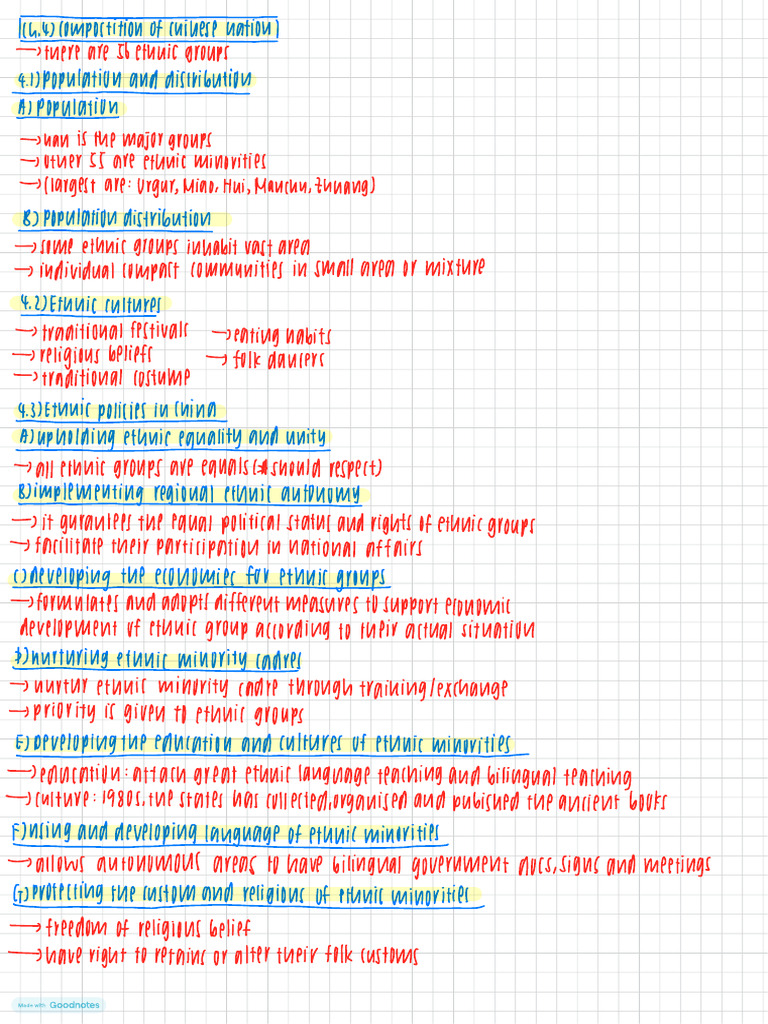 Ch.4) Composition of Chinese nation
→ there are 56 ethnic groups
4.1) Population and distribution
A) Population
→ Han is the major groups
→ other 55 are ethnic minorities
→ (largest are: Urgur, Miao, Hui, Manchu, Zhuang)
B) Population distribution
→ some ethnic groups inhabit vast area
→ individual compact communities in small area or mixture
4.2) Ethnic cultures
→ traditional festivals → eating habits
→ religious beliefs → folk dancers
→ traditional costume
4.3) Ethnic policies in China
A) upholding ethnic equality and unity
→ all ethnic groups are equals (should respect)
B) implementing regional ethnic autonomy
→ it gurantees the equal political status and rights of ethnic groups
→ facilitate their participation in national affairs
C) developing the economies for ethnic groups
→ formulates and adopts different measures to support economic
development of ethnic group according to their actual situation
D) nurturing ethnic minority cadres
→ nurtur ethnic minority cadre through training/exchange
→ priority is given to ethnic groups
E) Developing the education and cultures of ethnic minorities
→ education: attach great ethnic language teaching and bilingual teaching
→ culture: 1980s, the states has collected, organised and pubished the ancient books
F) using and developing language of ethnic minorities
→ allows autonomous areas to have bilingual government docs, signs and meetings
G) protecting the custom and religious of ethnic minorities
→ freedom of religious belief
→ have right to retains or alter their folk customs
Made with Goodnotes